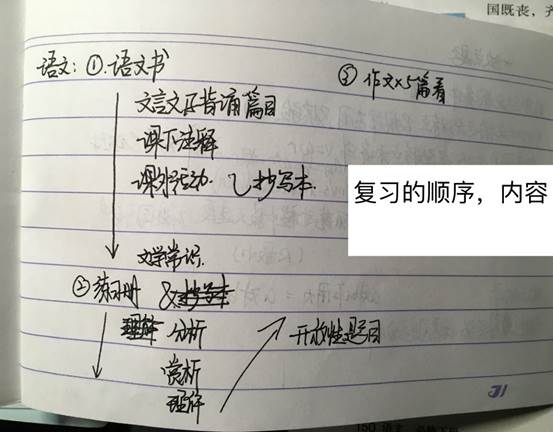 国既丧，
语文：①.语文书
文言文及背诵篇目
课下注释
课外活动 抄写本.
文学常识.
②练习册 & 抄写本
理解 分析
赏析
理解
开放性题目
③ 作文×5篇看
复习的顺序，内容